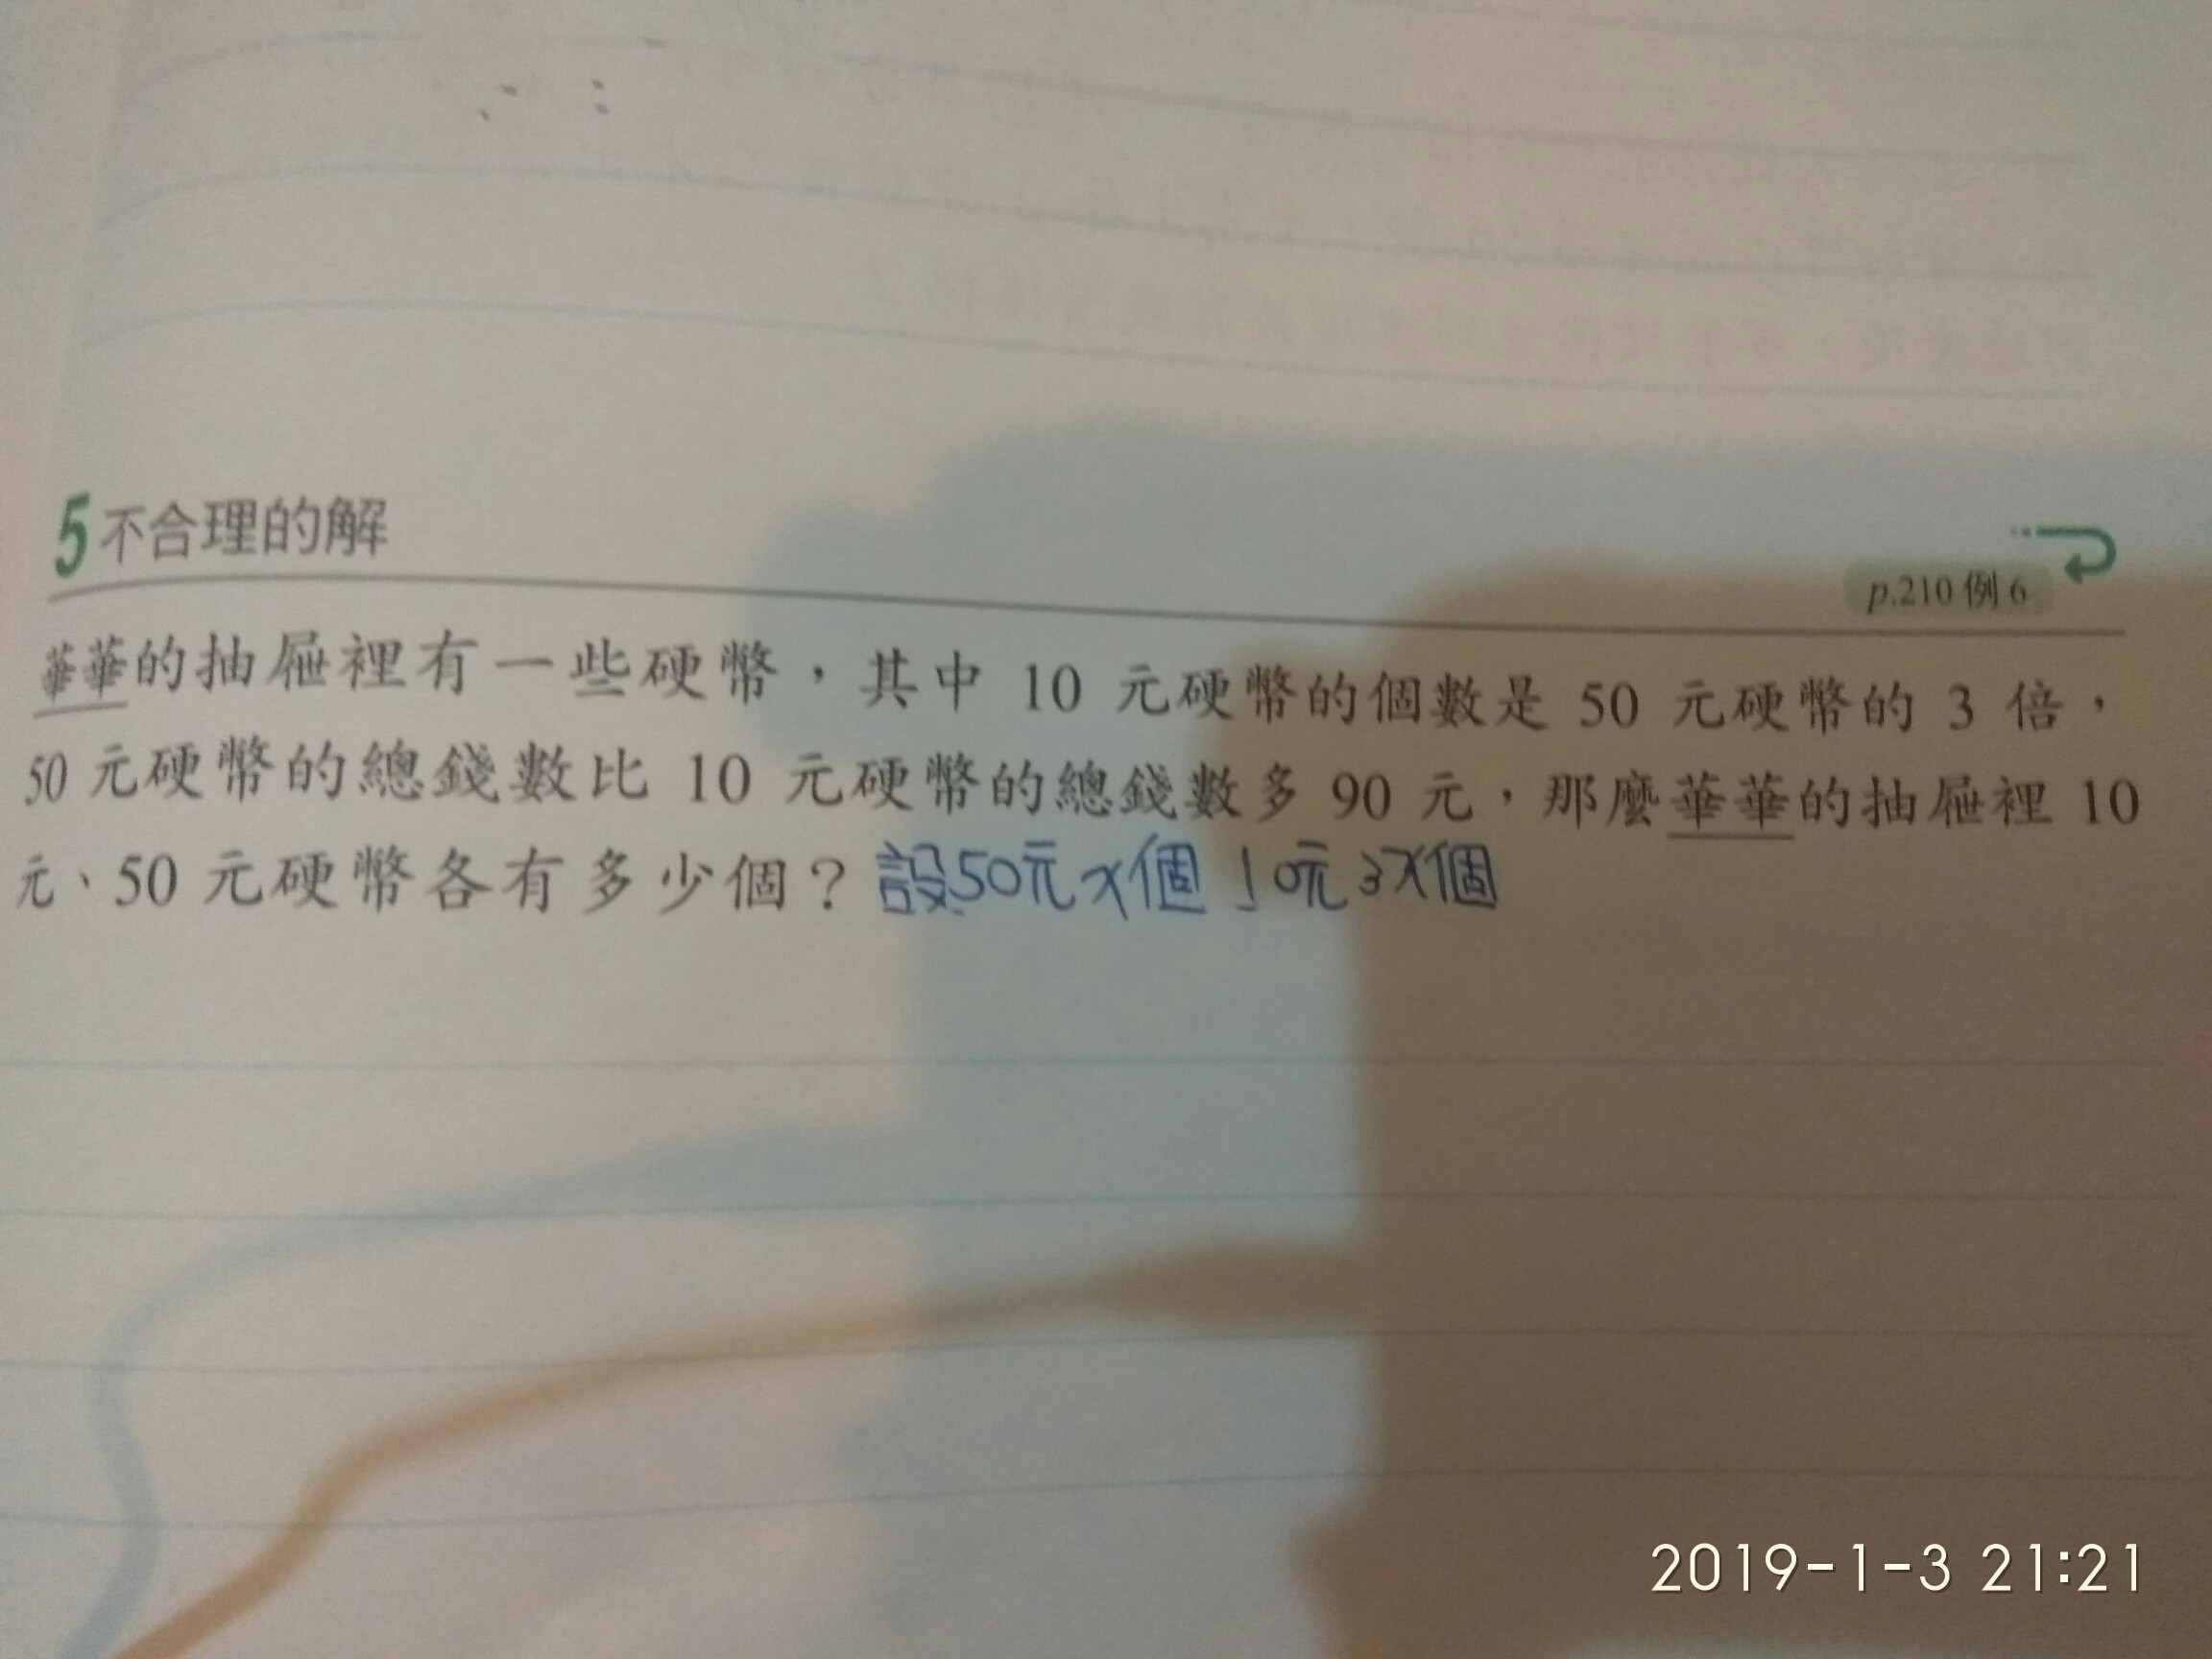 5 不合理的解
p.210 例 6
華華的抽屜裡有一些硬幣，其中 10 元硬幣的個數是 50 元硬幣的 3 倍，
50 元硬幣的總錢數比 10 元硬幣的總錢數多 90 元，那麼華華的抽屜裡 10
元、50 元硬幣各有多少個？設50元x個 10元3x個
2019-1-3 21:21